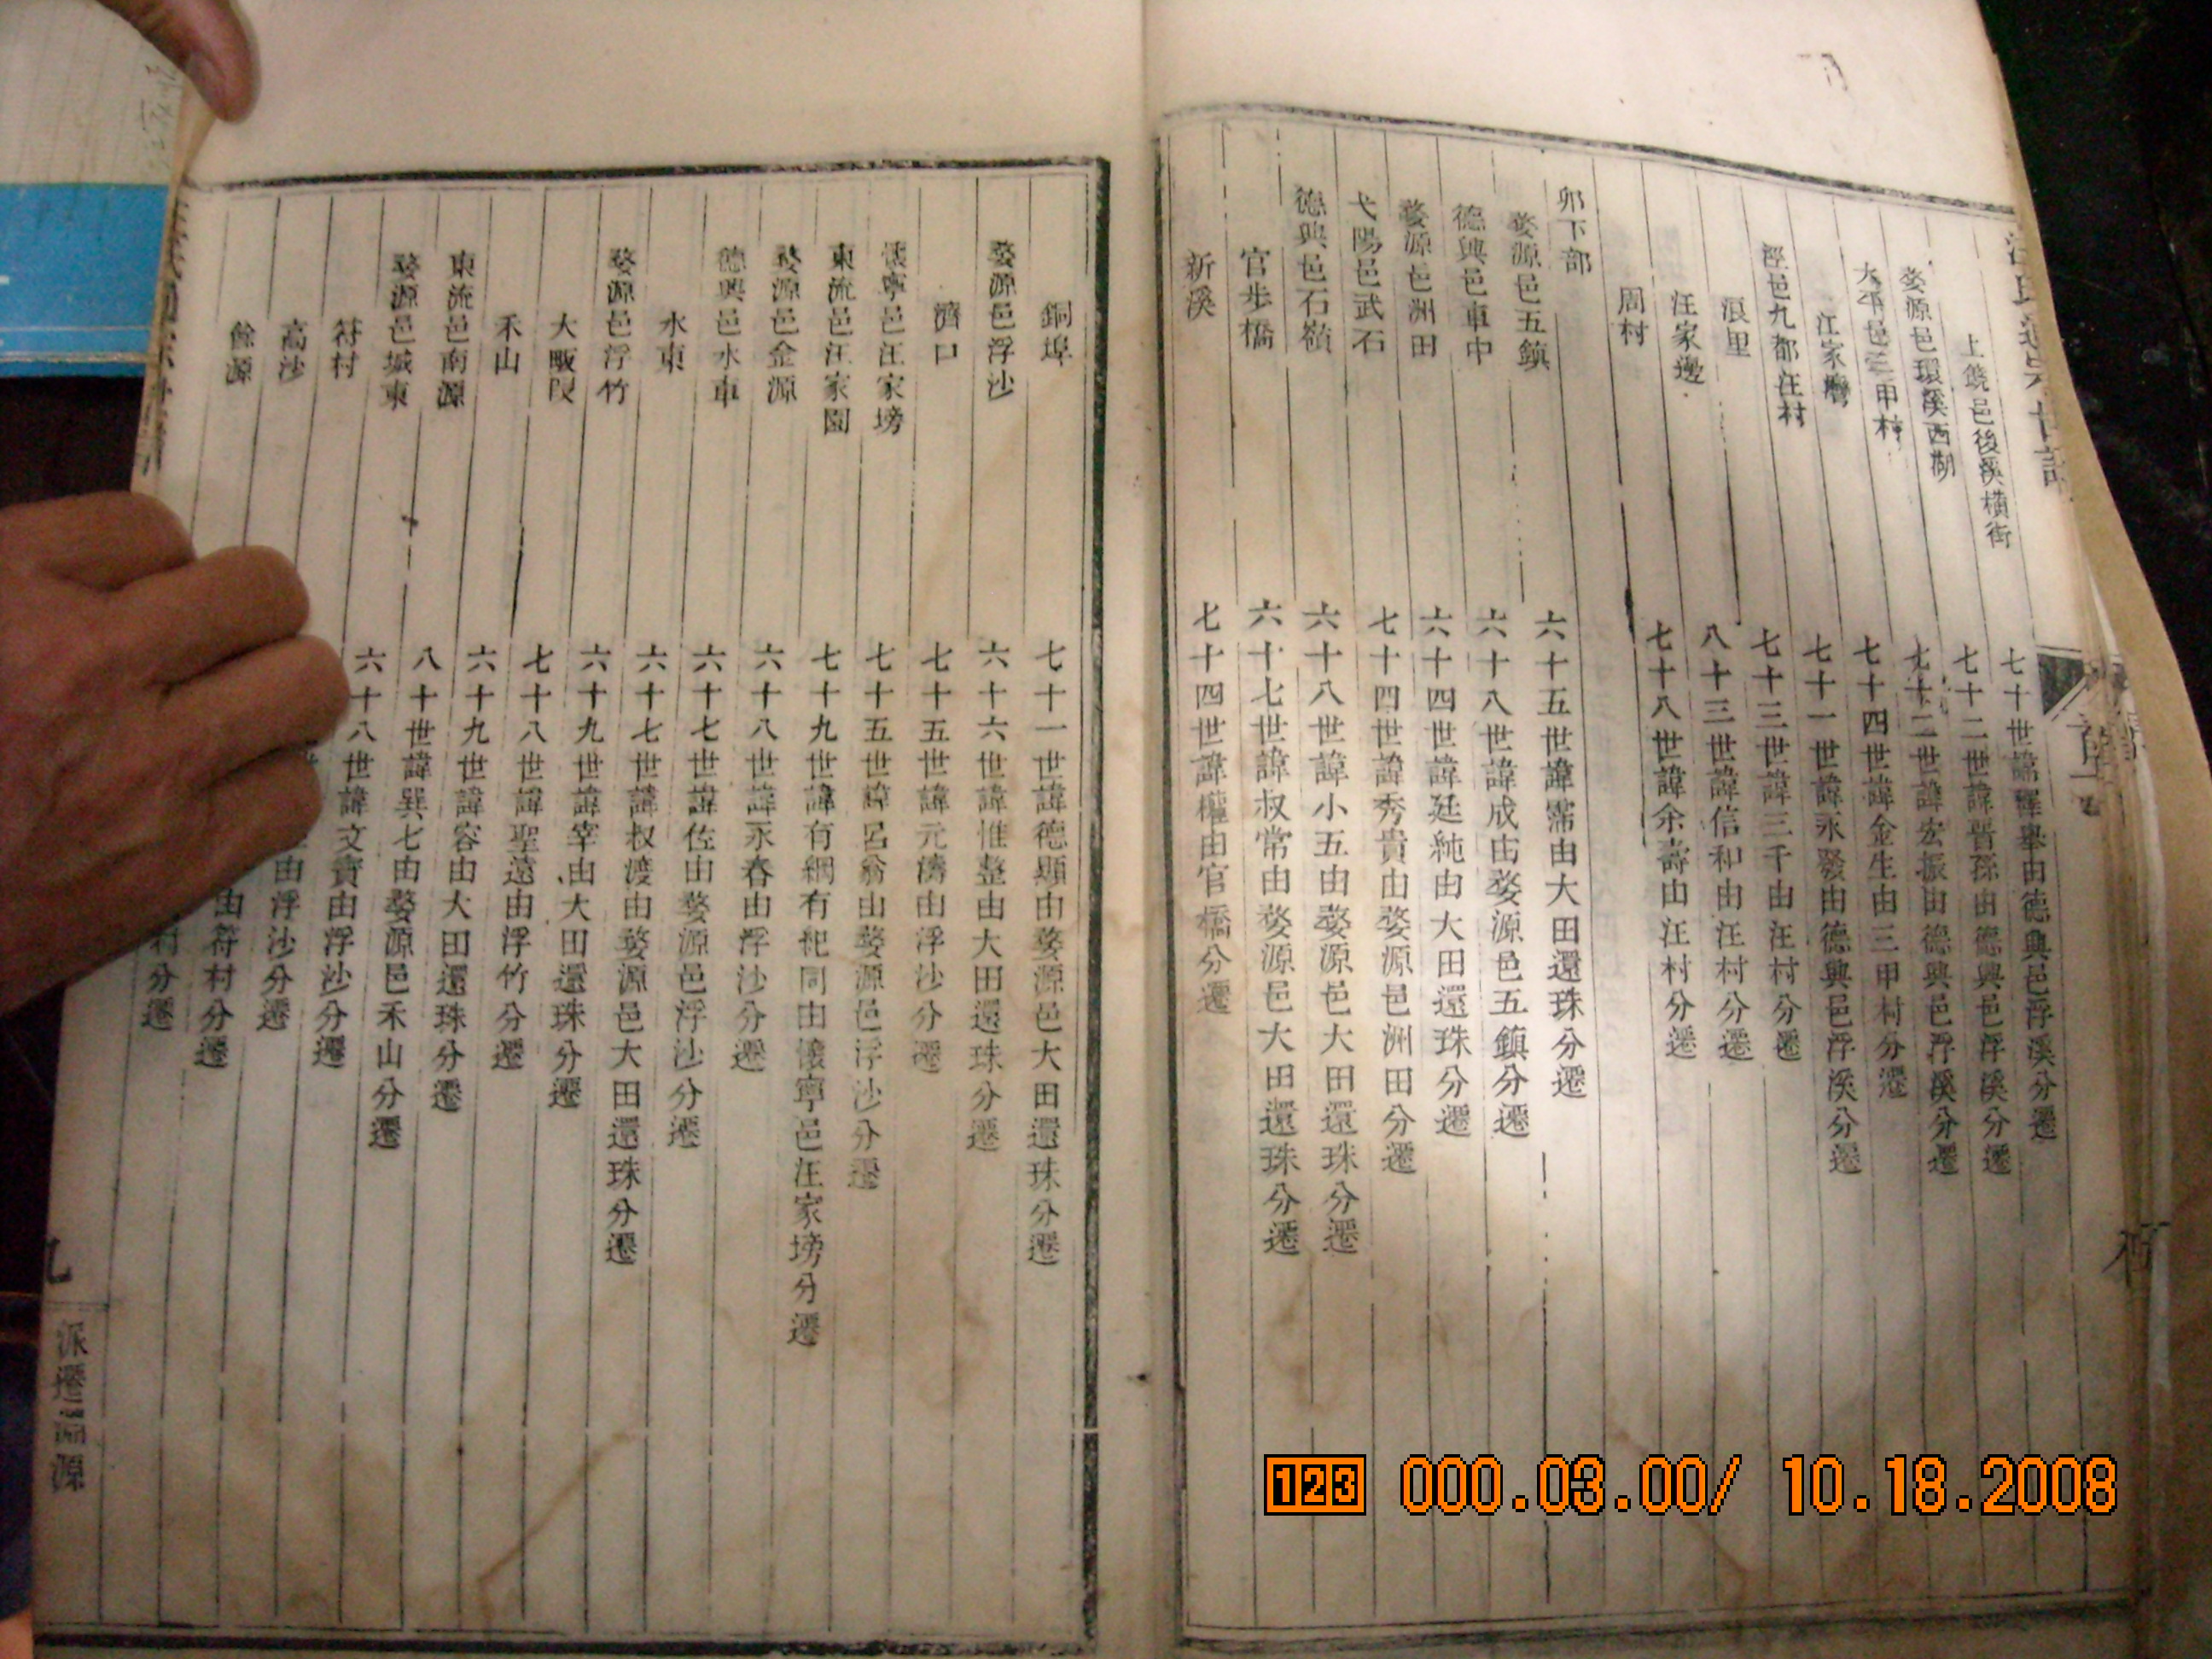 上饒邑後溪橫街 七十世諱
由德興邑浮溪分遷
婺源邑環溪西湖 七十二世諱晉孫由德興邑浮溪分遷
大平邑三甲村 七十二世諱宏振由德興邑浮溪分遷
江家 七十四世諱金生由三甲村分遷
涇邑九都汪村 七十一世諱永發由德興邑浮溪分遷
浪里 七十三世諱三千由汪村分遷
汪家邊 八十三世諱信和由汪村分遷
周村 七十八世諱余壽由汪村分遷
邜下部
婺源邑五鎮 六十五世諱霈由大田還珠分遷
德興邑車中 六十八世諱成由婺源邑五鎮分遷
婺源邑洲田 六十四世諱廷純由大田還珠分遷
弋陽邑武石 七十四世諱秀貴由婺源邑洲田分遷
德興邑石嶺 六十八世諱小五由婺源邑大田還珠分遷
官步橋 六十七世諱叔常由婺源邑大田還珠分遷
新溪 七十四世諱權由官橋分遷
銅埠 七十一世諱德顯由婺源邑大田還珠分遷
婺源邑浮沙 六十六世諱惟整由大田還珠分遷
濟口 七十五世諱元濤由浮沙分遷
懷寧邑汪家塝 七十五世諱呂翁由婺源邑浮沙分遷
東流邑汪家園 七十九世諱有綱有祀同由懷寧邑汪家塝分遷
婺源邑金源 六十八世諱永春由浮沙分遷
德興邑水車 六十七世諱佐由婺源邑浮沙分遷
水東 六十七世諱叔渡由婺源邑大田還珠分遷
婺源邑浮竹 六十九世諱宰由大田還珠分遷
大畈段 七十八世諱聖遠由浮竹分遷
禾山 六十九世諱容由大田還珠分遷
東流邑南源 八十世諱巽七由婺源邑禾山分遷
婺源邑城東 六十八世諱文寶由浮沙分遷
符村 由浮沙分遷
高沙 由符村分遷
餘源 村分遷
派遷淵源
123 000.03.00/ 10.18.2008